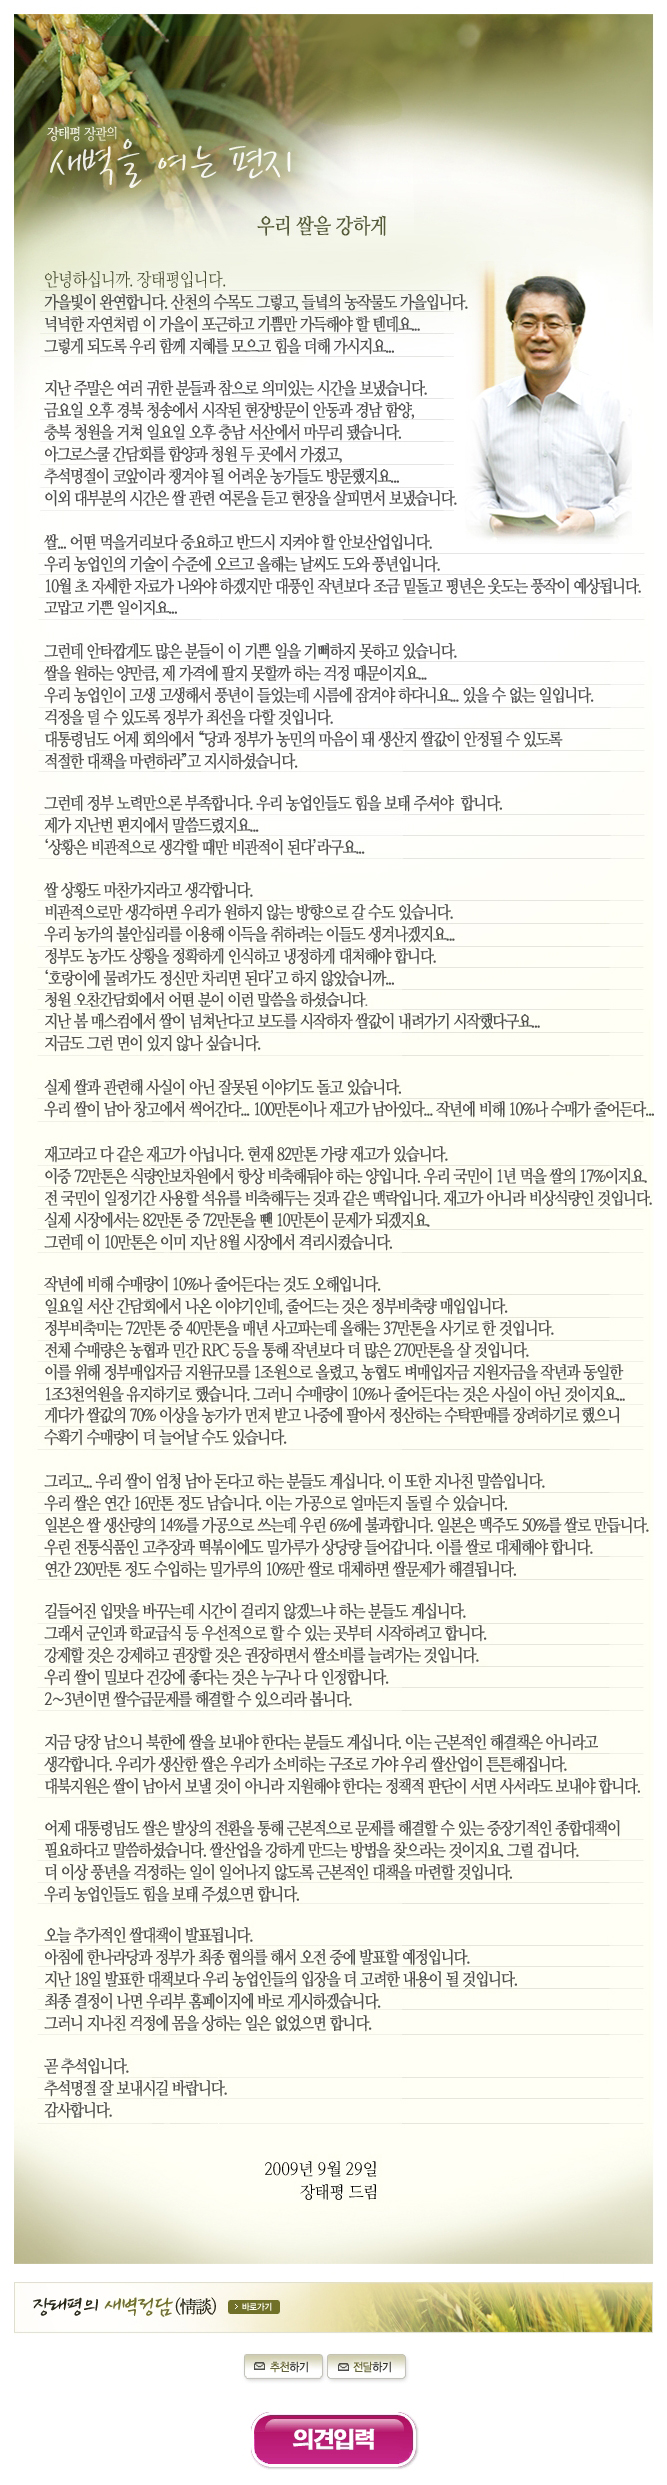 장태평 장관의
새벽을 여는 편지
우리 쌀을 강하게
안녕하십니까. 장태평입니다.
가을빛이 완연합니다. 산천의 수목도 그렇고, 들녘의 농작물도 가을입니다.
넉넉한 자연처럼 이 가을이 포근하고 기쁨만 가득해야 할 텐데요...
그렇게 되도록 우리 함께 지혜를 모으고 힘을 더해 가시지요...
지난 주말은 여러 귀한 분들과 참으로 의미있는 시간을 보냈습니다.
금요일 오후 경북 청송에서 시작된 현장방문이 안동과 경남 함양,
충북 청원을 거쳐 일요일 오후 충남 서산에서 마무리 됐습니다.
아그로스쿨 간담회를 함양과 청원 두 곳에서 가졌고,
추석명절이 코앞이라 챙겨야 될 어려운 농가들도 방문했지요...
이외 대부분의 시간은 쌀 관련 여론을 듣고 현장을 살피면서 보냈습니다.
쌀... 어떤 먹을거리보다 중요하고 반드시 지켜야 할 안보산업입니다.
우리 농업인의 기술이 수준에 오르고 올해는 날씨도 도와 풍년입니다.
10월 초 자세한 자료가 나와야 하겠지만 대풍인 작년보다 조금 밑돌고 평년은 웃도는 풍작이 예상됩니다.
고맙고 기쁜 일이지요...
그런데 안타깝게도 많은 분들이 이 기쁜 일을 기뻐하지 못하고 있습니다.
쌀을 원하는 양만큼, 제 가격에 팔지 못할까 하는 걱정 때문이지요...
우리 농업인이 고생 고생해서 풍년이 들었는데 시름에 잠겨야 하다니요... 있을 수 없는 일입니다.
걱정을 덜 수 있도록 정부가 최선을 다할 것입니다.
대통령님도 어제 회의에서 “당과 정부가 농민의 마음이 돼 생산지 쌀값이 안정될 수 있도록
적절한 대책을 마련하라”고 지시하셨습니다.
그런데 정부 노력만으론 부족합니다. 우리 농업인들도 힘을 보태 주셔야 합니다.
제가 지난번 편지에서 말씀드렸지요...
‘상황은 비관적으로 생각할 때만 비관적이 된다’라구요...
쌀 상황도 마찬가지라고 생각합니다.
비관적으로만 생각하면 우리가 원하지 않는 방향으로 갈 수도 있습니다.
우리 농가의 불안심리를 이용해 이득을 취하려는 이들도 생겨나겠지요...
정부도 농가도 상황을 정확하게 인식하고 냉정하게 대처해야 합니다.
‘호랑이에 물려가도 정신만 차리면 된다’고 하지 않았습니까...
청원 오찬간담회에서 어떤 분이 이런 말씀을 하셨습니다.
지난 봄 매스컴에서 쌀이 넘쳐난다고 보도를 시작하자 쌀값이 내려가기 시작했다구요...
지금도 그런 면이 있지 않나 싶습니다.
실제 쌀과 관련해 사실이 아닌 잘못된 이야기도 돌고 있습니다.
우리 쌀이 남아 창고에서 썩어간다... 100만톤이나 재고가 남아있다... 작년에 비해 10%나 수매가 줄어든다...
재고라고 다 같은 재고가 아닙니다. 현재 82만톤 가량 재고가 있습니다.
이중 72만톤은 식량안보차원에서 항상 비축해둬야 하는 양입니다. 우리 국민이 1년 먹을 쌀의 17%이지요.
전 국민이 일정기간 사용할 석유를 비축해두는 것과 같은 맥락입니다. 재고가 아니라 비상식량인 것입니다.
실제 시장에서는 82만톤 중 72만톤을 뺀 10만톤이 문제가 되겠지요.
그런데 이 10만톤은 이미 지난 8월 시장에서 격리시켰습니다.
작년에 비해 수매량이 10%나 줄어든다는 것도 오해입니다.
일요일 서산 간담회에서 나온 이야기인데, 줄어드는 것은 정부비축량 매입입니다.
정부비축미는 72만톤 중 40만톤을 매년 사고파는데 올해는 37만톤을 사기로 한 것입니다.
전체 수매량은 농협과 민간 RPC 등을 통해 작년보다 더 많은 270만톤을 살 것입니다.
이를 위해 정부매입자금 지원규모를 1조원으로 올렸고, 농협도 벼매입자금 지원자금을 작년과 동일한
1조3천억원을 유지하기로 했습니다. 그러니 수매량이 10%나 줄어든다는 것은 사실이 아닌 것이지요...
게다가 쌀값의 70% 이상을 농가가 먼저 받고 나중에 팔아서 정산하는 수탁판매를 장려하기로 했으니
수확기 수매량이 더 늘어날 수도 있습니다.
그리고... 우리 쌀이 엄청 남아 돈다고 하는 분들도 계십니다. 이 또한 지나친 말씀입니다.
우리 쌀은 연간 16만톤 정도 남습니다. 이는 가공으로 얼마든지 돌릴 수 있습니다.
일본은 쌀 생산량의 14%를 가공으로 쓰는데 우린 6%에 불과합니다. 일본은 맥주도 50%를 쌀로 만듭니다.
우린 전통식품인 고추장과 떡볶이에도 밀가루가 상당량 들어갑니다. 이를 쌀로 대체해야 합니다.
연간 230만톤 정도 수입하는 밀가루의 10%만 쌀로 대체하면 쌀문제가 해결됩니다.
길들어진 입맛을 바꾸는데 시간이 걸리지 않겠느냐 하는 분들도 계십니다.
그래서 군인과 학교급식 등 우선적으로 할 수 있는 곳부터 시작하려고 합니다.
강제할 것은 강제하고 권장할 것은 권장하면서 쌀소비를 늘려가는 것입니다.
우리 쌀이 밀보다 건강에 좋다는 것은 누구나 다 인정합니다.
2~3년이면 쌀수급문제를 해결할 수 있으리라 봅니다.
지금 당장 남으니 북한에 쌀을 보내야 한다는 분들도 계십니다. 이는 근본적인 해결책은 아니라고
생각합니다. 우리가 생산한 쌀은 우리가 소비하는 구조로 가야 우리 쌀산업이 튼튼해집니다.
대북지원은 쌀이 남아서 보낼 것이 아니라 지원해야 한다는 정책적 판단이 서면 사서라도 보내야 합니다.
어제 대통령님도 쌀은 발상의 전환을 통해 근본적으로 문제를 해결할 수 있는 중장기적인 종합대책이
필요하다고 말씀하셨습니다. 쌀산업을 강하게 만드는 방법을 찾으라는 것이지요. 그럴 겁니다.
더 이상 풍년을 걱정하는 일이 일어나지 않도록 근본적인 대책을 마련할 것입니다.
우리 농업인들도 힘을 보태 주셨으면 합니다.
오늘 추가적인 쌀대책이 발표됩니다.
아침에 한나라당과 정부가 최종 협의를 해서 오전 중에 발표할 예정입니다.
지난 18일 발표한 대책보다 우리 농업인들의 입장을 더 고려한 내용이 될 것입니다.
최종 결정이 나면 우리부 홈페이지에 바로 게시하겠습니다.
그러니 지나친 걱정에 몸을 상하는 일은 없었으면 합니다.
곧 추석입니다.
추석명절 잘 보내시길 바랍니다.
감사합니다.
2009년 9월 29일
장태평 드림
장태평의 새벽정담(情談) 바로가기
추천하기 전달하기
의견입력